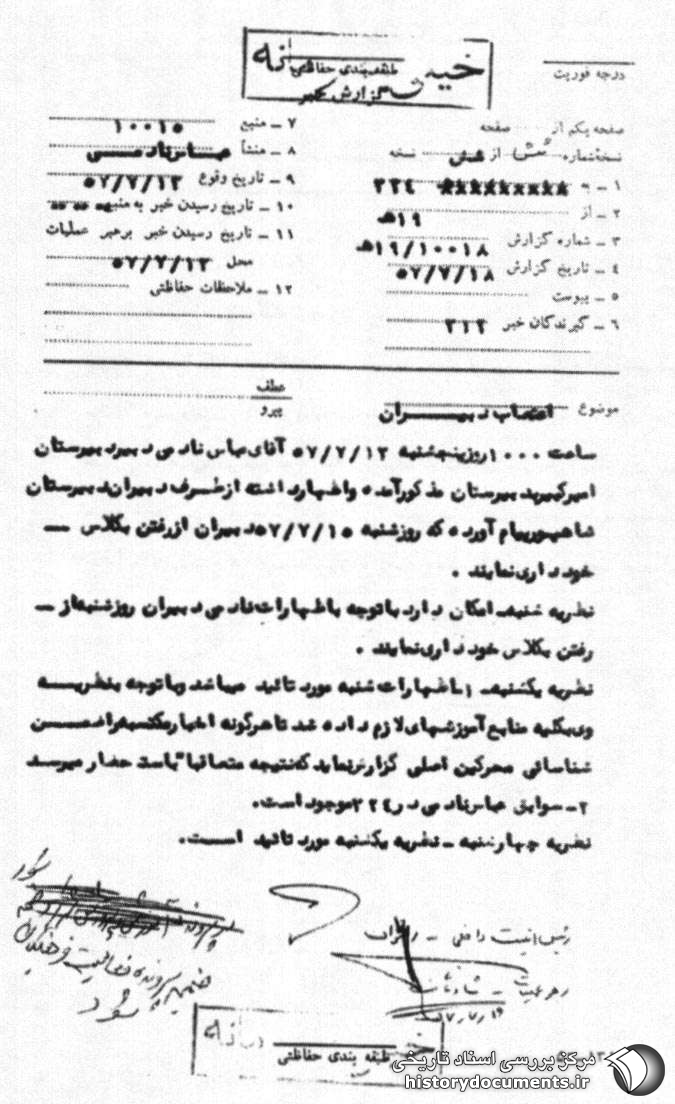 خیلی محرمانه
طبقه‌بندی حفاظتی
گزارش خبر
درجه فوریت
صفحه یکم از صفحه
نسخه شماره شش از شش نسخه
۱ ـ به ۳۳۴
۲ ـ از ۱۹ هـ
۳ ـ شماره گزارش ۱۹/۱۰۰۱۸ هـ
۴ ـ تاریخ گزارش ۵۷/۷/۱۸
۵ ـ پیوست
۶ ـ گیرندگان خبر ۳۱۲
۷ ـ منبع ۱۰۰۱۵
۸ ـ منشأ عباس نادمی
۹ ـ تاریخ وقوع ۵۷/۷/۱۳
۱۰ ـ تاریخ رسیدن خبر به منبع
۱۱ ـ تاریخ رسیدن خبر برهبر عملیات
محل ۵۷/۷/۱۳
۱۲ ـ ملاحظات حفاظتی
عطف
پیرو
موضوع اعتصاب دبیران
ساعت ۱۰۰۰ روز پنجشنبه ۵۷/۷/۱۳ آقای عباس نادمی دبیر دبیرستان
امیرکبیر به دبیرستان مذکور آمده و اظهار داشته از طرف دبیران دبیرستان
شاهپور پیام آورده که روز شنبه ۵۷/۷/۱۵ دبیران از رفتن بکلاس ـــ
خودداری نمایند .
نظریه شنبه ـ امکان دارد با توجه باظهارات نادمی دبیران روز شنبه از ـــ
رفتن بکلاس خودداری نمایند .
نظریه یکشنبه ـ ۱ـ اظهارات شنبه مورد تائید میباشد و با توجه بنظریه
وی بکلیه منابع آموزشهای لازم داده شد تا هرگونه اخبار مکتسبه را ضمن
شناسائی محرکین اصلی گزارش نماید که نتیجه متعاقبا" باستحضار میرسد
۲ـ سوابق عباس نادمی در ۳۲۴ موجود است.
نظریه چهارشنبه ـ نظریه یکشنبه مورد تائید است.
رئیس امنیت داخلی ـ
رهبر عملیات ـ
ضمیمه پرونده فعالیت فرهنگیان
شود
طبقه بندی حفاظتی
مرکز بررسی اسناد تاریخی
historydocuments.ir